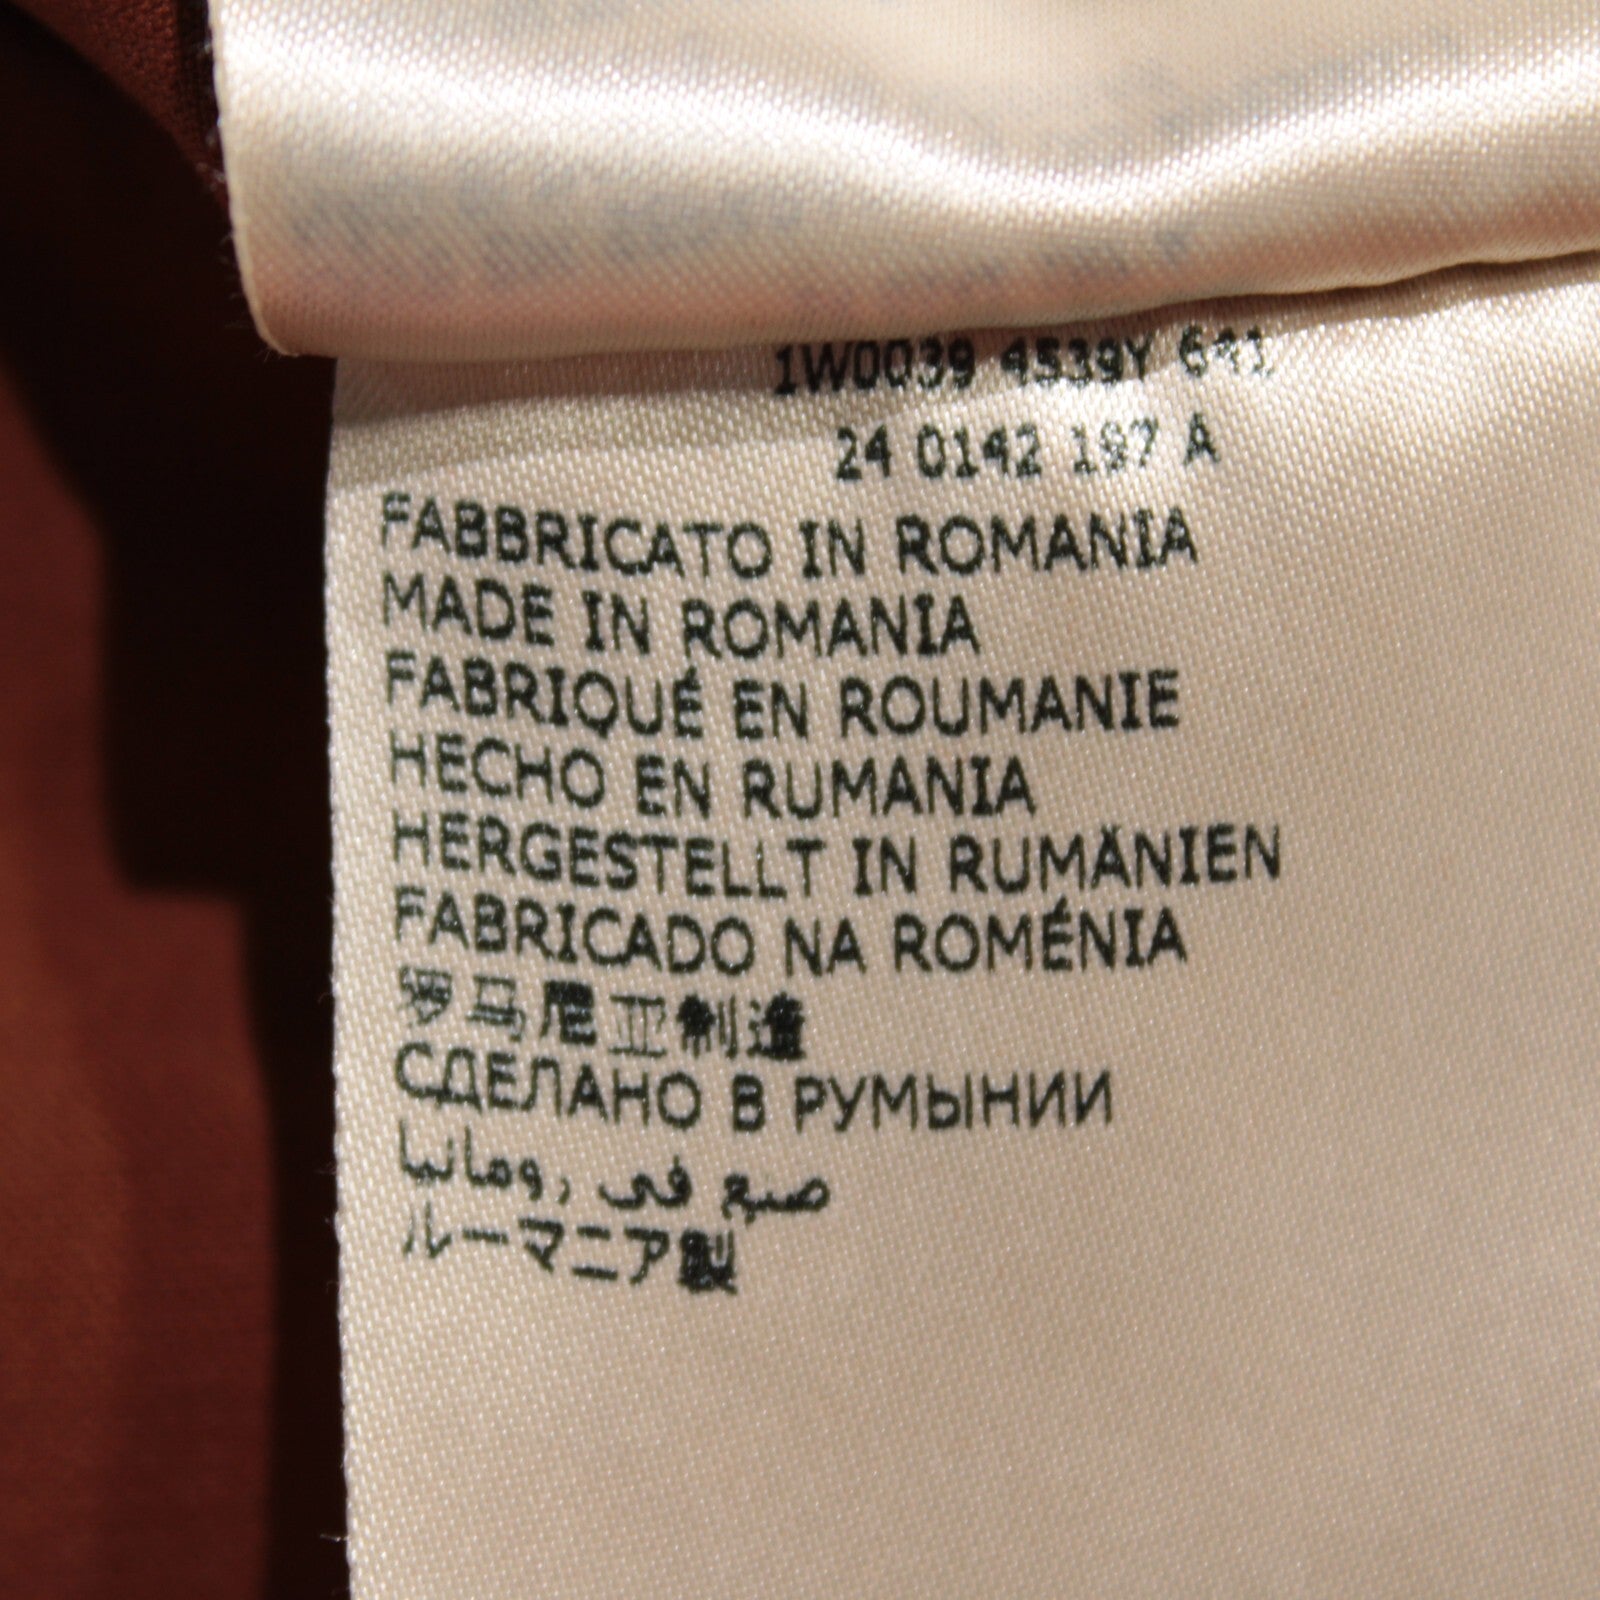 1W0039 4539Y 641
24 0142 197 A
FABBRICATO IN ROMANIA
MADE IN ROMANIA
FABRIQUÉ EN ROUMANIE
HECHO EN RUMANIA
HERGESTELLT IN RUMÄNIEN
FABRICADO NA ROMÉNIA
罗马尼亚制造
СДЕЛАНО В РУМЫНИИ
صبع في رومانيا
ルーマニア製